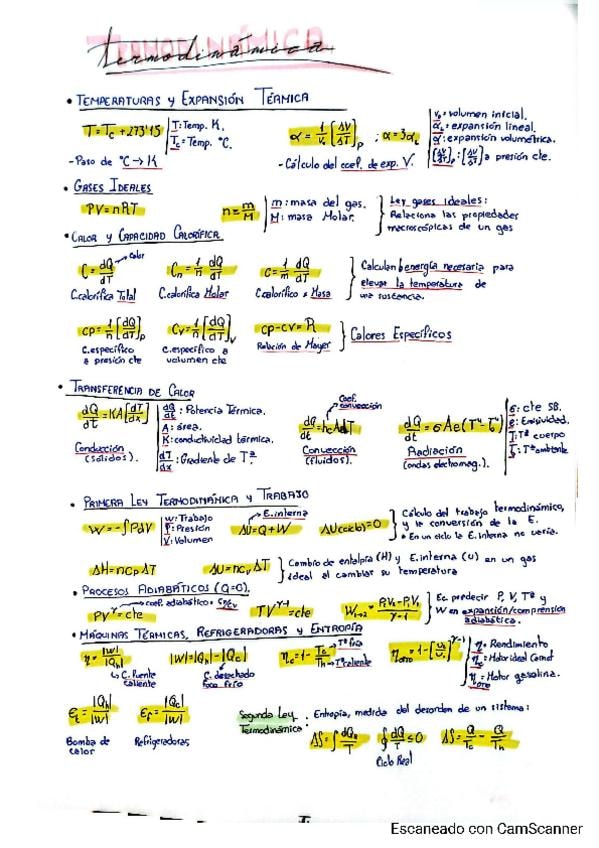 Termodinámica
• TEMPERATURAS y EXPANSIÓN TÉRMICA
T = Tc + 273'15 | T: Temp. K. Tc = Temp. °C.
α = 1/V₀ [ΔV/ΔT]p ; α = 3αL
V₀ = volumen inicial.
αL: expansión lineal.
α: expansión volumétrica.
[ΔV/ΔT]p: [ΔV/ΔT] a presión cte.
- Paso de °C → K
- Cálculo del coef. de exp. V.
• GASES IDEALES
PV = nRT
n = m/M
m: masa del gas.
M: masa Molar.
Ley gases ideales:
Relaciona las propiedades
macroscópicas de un gas
• CALOR y CAPACIDAD CALORÍFICA
C = dQ/dT → calor
Cn = 1/n dQ/dT
C = 1/m dQ/dT
Calculan la energía necesaria para
elevar la temperatura de
una sustancia.
C.calorífica Total
C.calorífica Molar
C.calorífica x Masa
CP = 1/n [dQ/dT]P
CV = 1/n [dQ/dT]V
CP - CV = R
Calores Específicos
C.específico
a presión cte
C.específico a
volumen cte
Relación de Mayer
• TRANSFERENCIA DE CALOR
dQ/dt = KA[dT/dx]
dQ/dt: Potencia Térmica.
A: área.
K: conductividad térmica.
dT/dx: Gradiente de Tª
Conducción
(sólidos).
Coef. convección
dQ/dt = hcAΔT
Convección
(fluidos).
dQ/dt = σAe(T⁴ - T₀⁴)
Radiación
(ondas electromag.).
σ: cte SB.
e: Emisividad.
T: Tª cuerpo
T₀: Tª ambiente
• PRIMERA LEY TERMODINÁMICA y TRABAJO
W = -∫PdV
W: Trabajo
P: Presión
V: Volumen
→ E.interna
ΔU = Q + W
ΔU(ciclo) = 0
Cálculo del trabajo termodinámico,
y la conversión de la E.
• En un ciclo la E. interna no varía.
ΔH = nCPΔT
ΔU = nCVΔT
Cambio de entalpía (H) y E.interna (U) en un gas
ideal al cambiar su temperatura
• PROCESOS ADIABÁTICOS (Q=0).
PV^γ = cte → coef. adiabático = CP/CV
TV^γ-1 = cte
W₁→₂ = P₂V₂ - P₁V₁ / γ-1
Ec predecir P, V, Tª y
W en expansión/compresión
adiabática.
• MÁQUINAS TÉRMICAS, REFRIGERADORAS y ENTROPÍA
η = |W|/|Qh|
↳ C. fuente
caliente
|W| = |Qh| - |Qc|
C. desechado
foco frío
ηc = 1 - Tc/Th → Tª fría → Tª caliente
η: Rendimiento
ηc: Motor ideal Carnot
η otto: Motor gasolina.
εt = |Qh|/|W|
Bomba de
calor
εf = |Qc|/|W|
Refrigeradoras
Segunda Ley
Termodinámica:
Entropía, medida del desorden de un sistema:
ΔS = ∫dQ/T
∮dQ/T ≤ 0
Ciclo Real
ΔS = Q/Tc - Q/Th
Escaneado con CamScanner